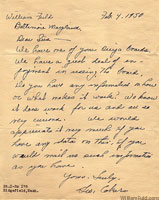 William Fuld Feb 9, 1950
Baltimore Maryland
Dear Sirs
We have one of your Ouija boards.
We have a great deal of en-
joyment in using the board.
Do you have any information about it or how
or what makes it work? We know it
does work for us and are so
very curious. We would
appreciate it very much if you
have any data on this. If you
would mail us such information
as you have.
Yours Truly,
Geo.
Ridgefield, Wash.